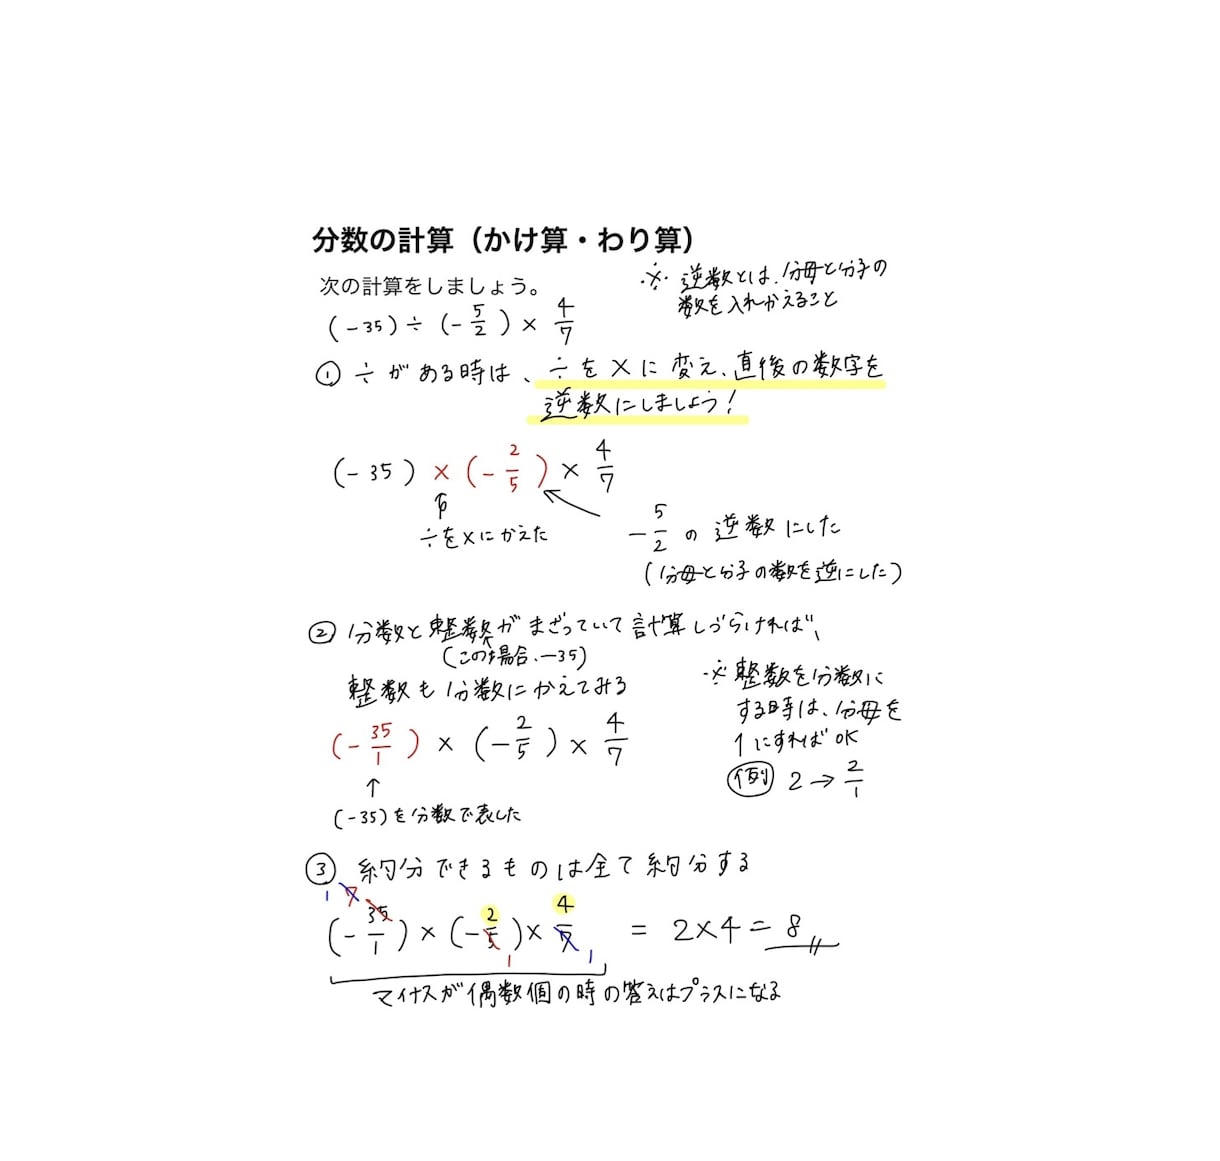 分数の計算（かけ算・わり算）
次の計算をしましょう。
(-35) ÷ (-5/2) × 4/7
※ 逆数とは、分母と分子の
数を入れかえること
① ÷がある時は、÷を×に変え、直後の数字を
逆数にしましょう!
(-35) × (-2/5) × 4/7
÷を×にかえた
-5/2 の逆数にした
(分母と分子の数を逆にした)
② 分数と整数がまざっていて計算しづらければ、
(この場合、-35)
整数も分数にかえてみる
※ 整数を分数に
する時は、分母を
1にすればOK
例 2 → 2/1
(-35/1) × (-2/5) × 4/7
↑
(-35)を分数で表した
③ 約分できるものは全て約分する
1 7
(-35/1) × (-2/5) × 4/7 = 2×4 = 8
1 1
マイナスが偶数個の時の答えはプラスになる